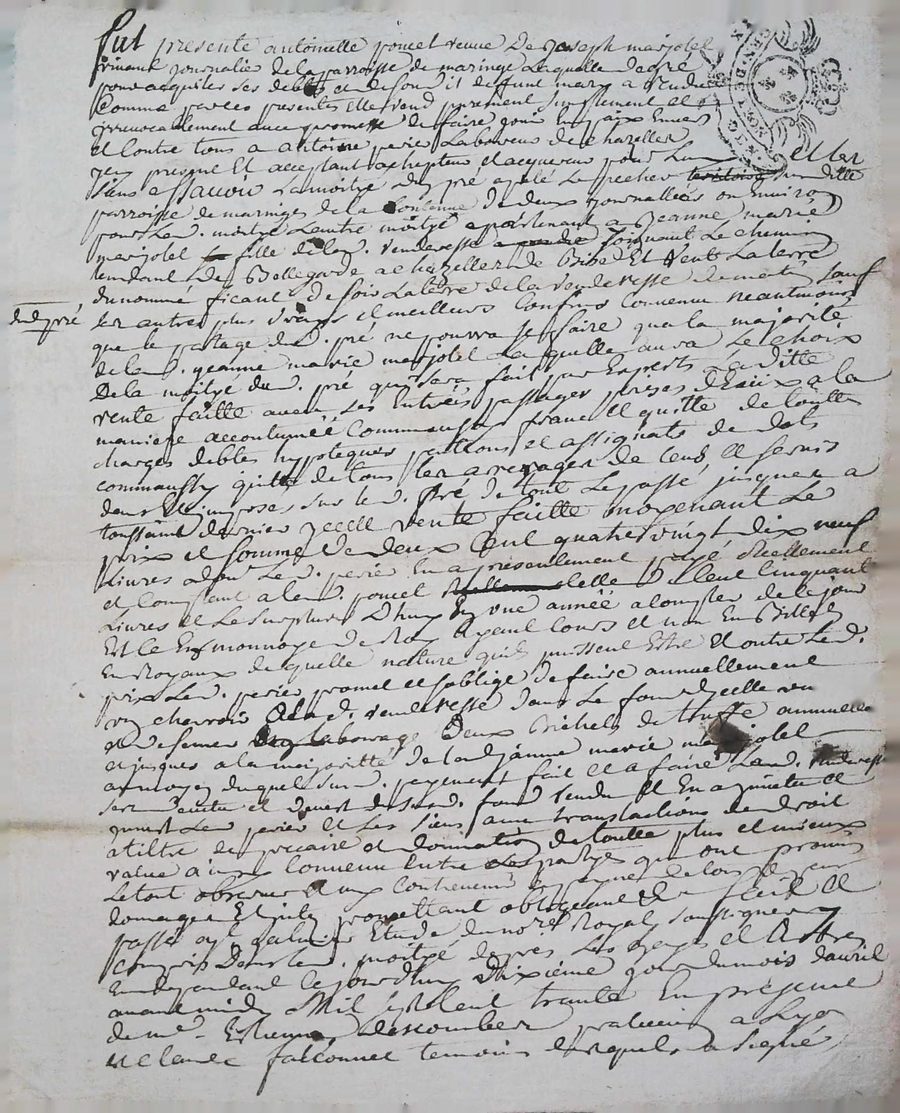 fut presente antoinette poncet veuve De Joseph marjolet
vivant journalier de la parroisse de maringe Laquelle De gré
pour acquiter ses debtes et de son dit deffunt mary a vendu
Comme par ces presentes elle vend purement simplement et
irrevocablement avec promesse de faire jouir En paix Envers
et Contre tous a antoine perier Laboureur de chazelles
icy present Et acceptant achepteur et acquereur pour Luy et les
siens assavoir La moitié du pré apelé Le pecher sur ditte
parroisse de maringe de la Contenue De deux journallées ou Environ
pour Lad. moitié Lautre moitié apartenant a Jeanne marie
marjolet fille de lad. venderesse joignant Le chemin
tendant De Bellegarde a chazelles de Bize Et vent La terre
du nommé ficant De soir La terre de la venderesse De matin sauf
dud. pré
les autres plus vrays et meilleurs Confins Convenu neantmoins
que le partage dud. pré ne pourra se faire qua la majorité
de la d. jeanne marie marjolet La quelle aura Le choix
De la moitié du d. pré qui sera fait par Experts La ditte
vente faitte avec ses Entrées passages prises d'Eaux a la
maniere accoutumée Comme aussy franc et quitte de touttes
charges debtes hypoteques pentions et assignats de dots
comme aussy quitte de tous les arrerages de Cens et servis
deus Et imposés sur le d. pré de tout Le passé jusques a
toussaint dernier ycelle vente faitte moyenant Le
prix et somme De deux Cent quatre vingt dix neuf
Livres a Compte Le d. perier En a presentement payé Reellement
et Comptant a lad. poncet Celle De Cent Cinquante
Livres et Le surplus Dhuy En une année a Compter de Ce jour
Et Le En monnoye de Roy Ayant Cours et non En Billets
En Royaux de quelle nature quils puissent Estre Et outre Led.
prix Led. perier promet et soblige de faire annuellement
un charroir A la d. venderesse dans Le fond ycelle vendu
et De semer deux Bichets de truffe annuellement
et jusques a la majorité de lad. janne marie marjolet
au moyen duquel sud. payement fait Et a faire Lad. venderesse
sera devetue et Devest dususd. fond vendu Et En a jnvetu et
jnvest Led. perier Et Les siens avec translations de droit
a tiltre de precaire et Donnation de toutte plus et mieux
value ainsy Convenu Entre Les partyes qui ont promis
Le tout observer Et aux Contrevenir a peyne de tous depens
domages Et jnts promettant obligeant &c fait Et
passé aud. Etude du nore Royal soussigné
Compris Dans lad. moitié de prés Les hayes et Arbres
En dependant Ce jourdhuy Dixième jour du mois d'avril
avant midy Mil sept Cent trente En presence
de mr Estienne descombes praticien a Lyon
et Claude falconnet temoins Lesquels a signé